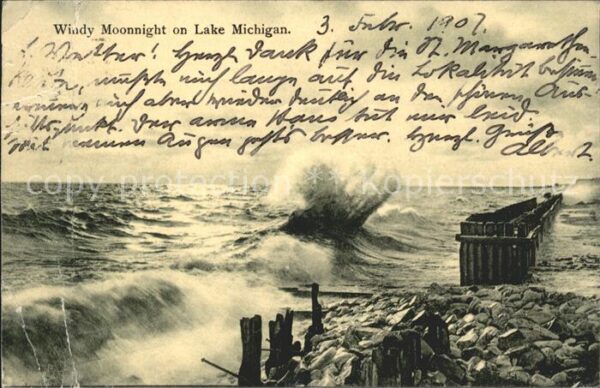 Windy Moonnight on Lake Michigan.
3. Febr. 1907.
L. Walter! Herzl. Dank für die St. Margarethen
mußte mich lange auf die Lokalität besinnen,
mich aber wieder deutlich an den schönen Aus-
sichtspunkt. Der arme Hans tut mir leid.
Mit meinen Augen geht's besser. Herzl. Grüße
Albert.
copy protection · Kopierschutz